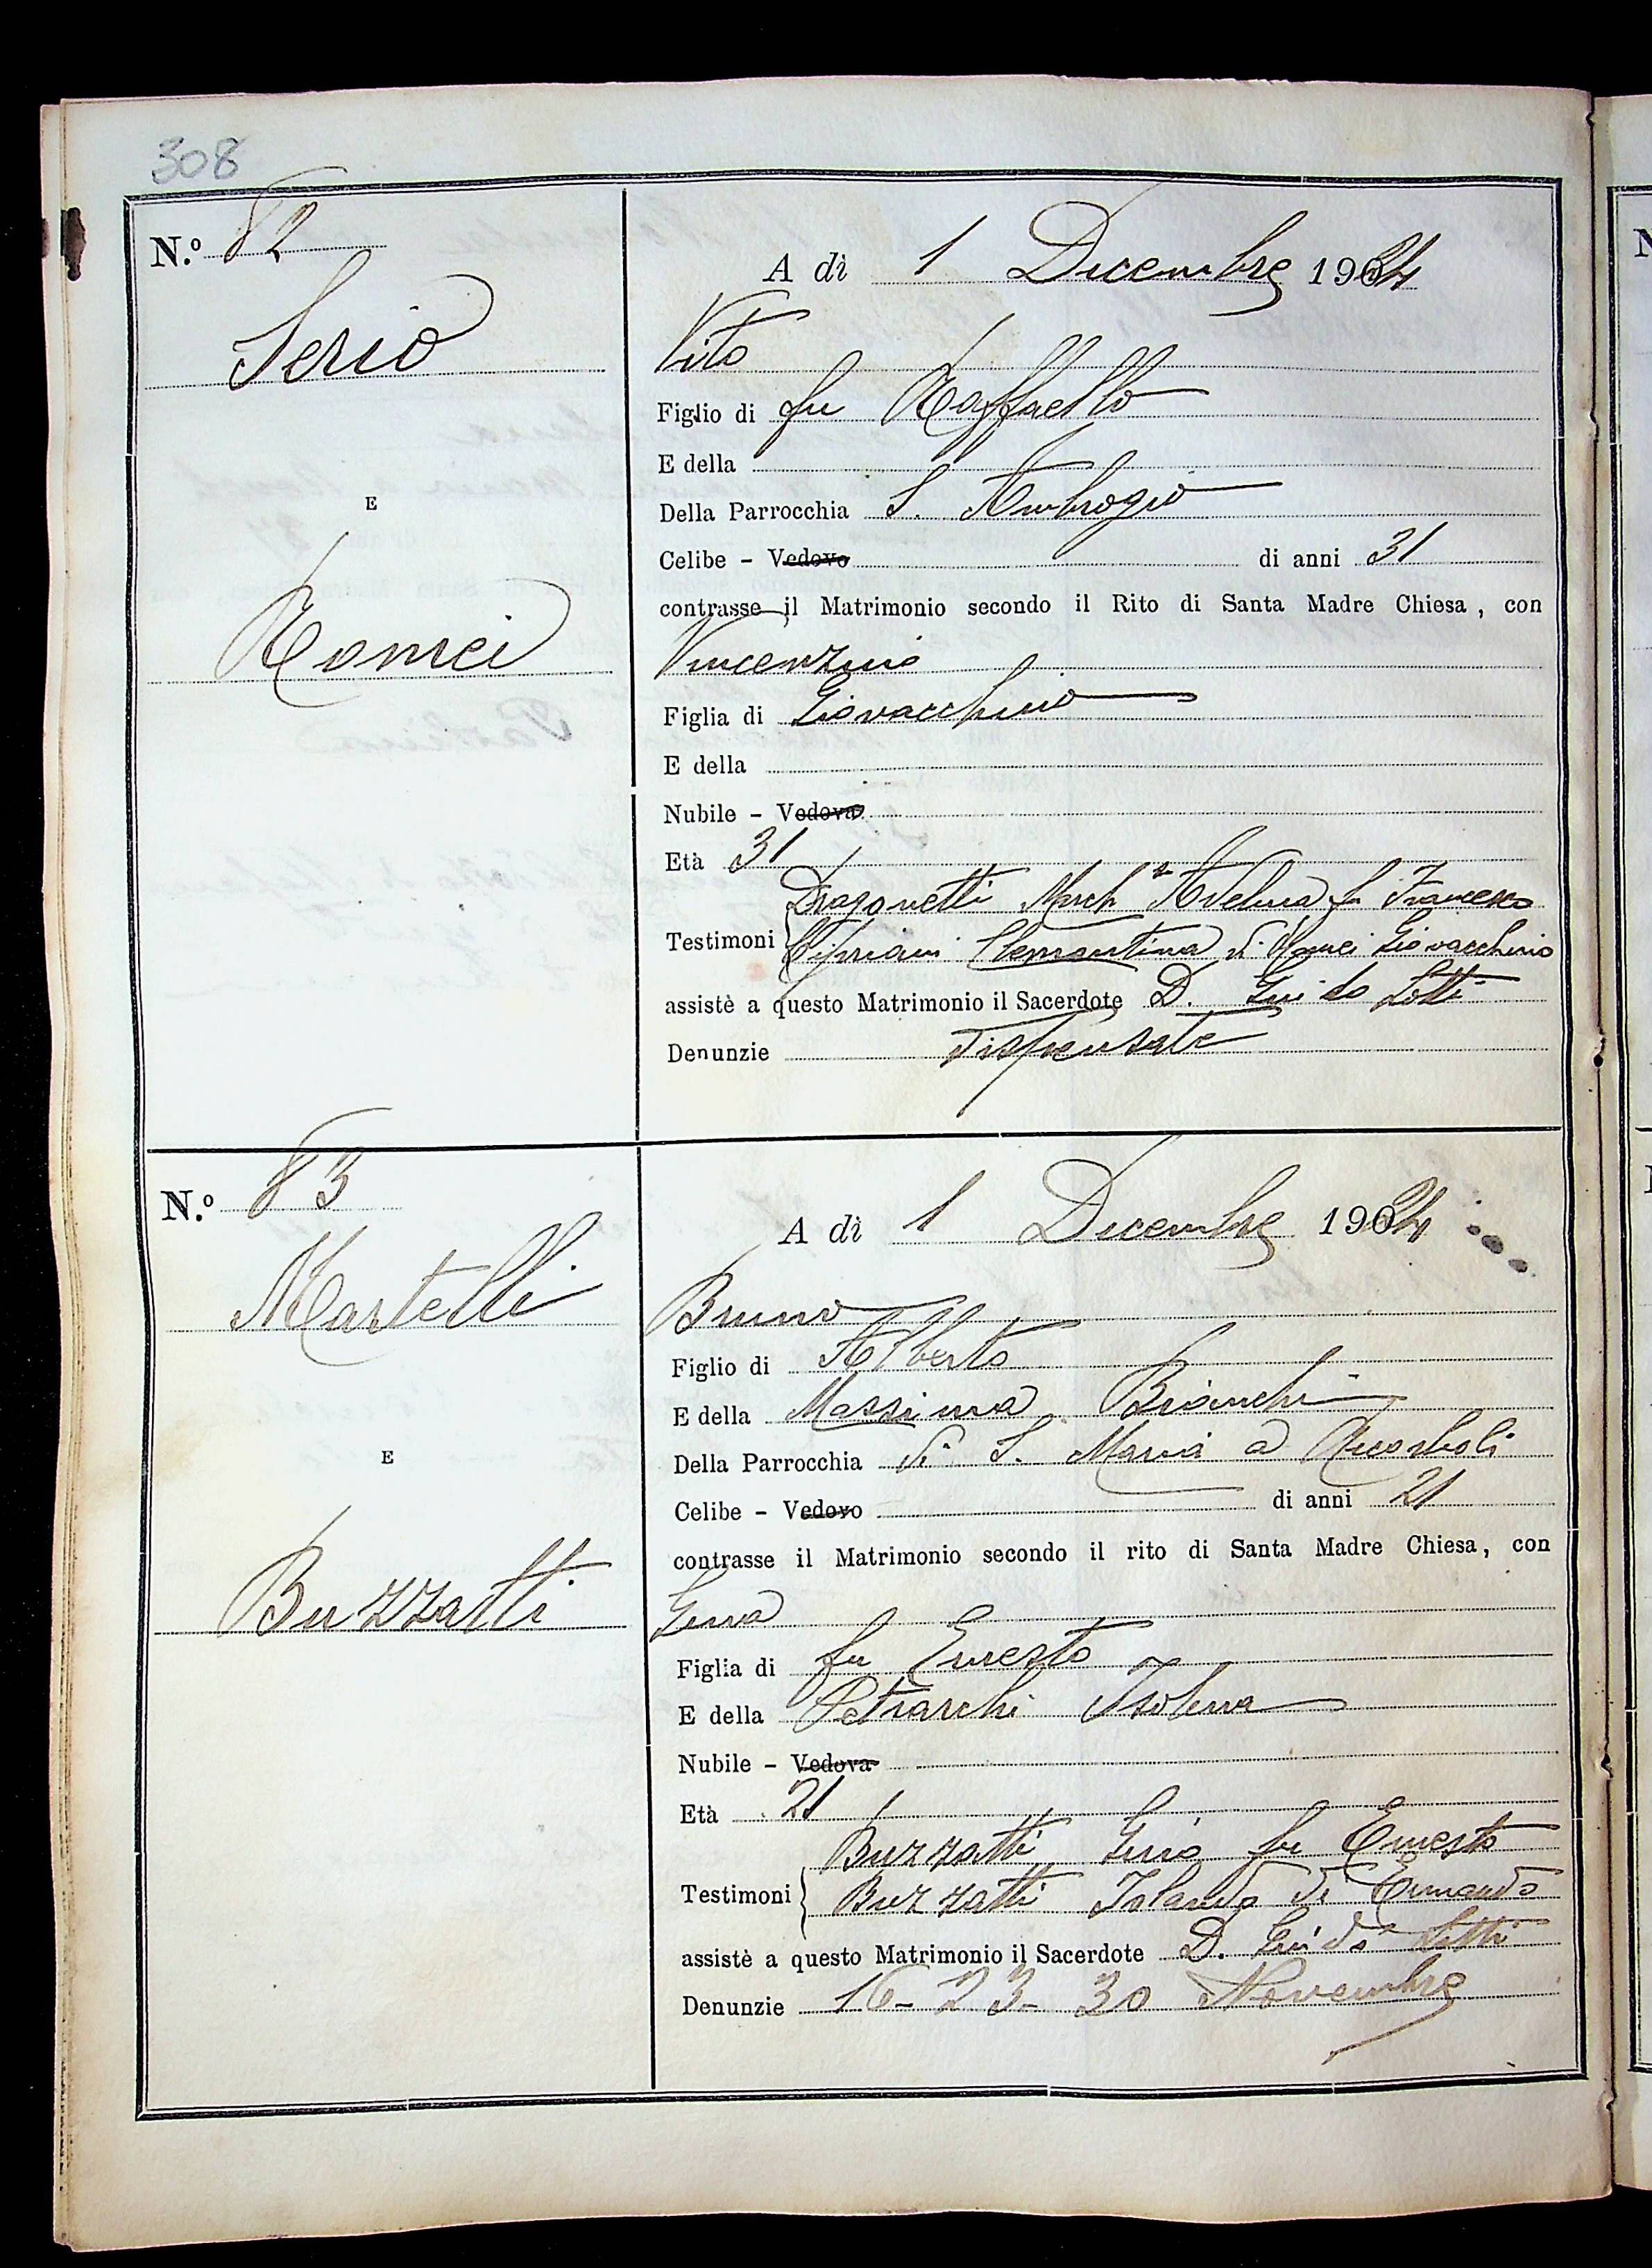 308
N.º 82
A dì 1 Dicembre 1924
Serio
Vito
Figlio di fu Raffaello
E della
Della Parrocchia S. Ambrogio
E
Celibe - Vedovo di anni 31
contrasse il Matrimonio secondo il Rito di Santa Madre Chiesa, con
Romei
Vincenzina
Figlia di Giovacchino
E della
Nubile - Vedova
Età 31
Dragonetti March Adelina fu Francesco
Testimoni Cipriani Clementina di Giovacchino
assistè a questo Matrimonio il Sacerdote D. Guido Lotti
Denunzie Dispensate
N.º 83
A dì 1 Dicembre 1924
Martelli
Bruno
Figlio di Alberto
E della Massima Bianchi
E
Della Parrocchia di S. Maria a Ricorboli
Celibe - Vedovo di anni 21
contrasse il Matrimonio secondo il rito di Santa Madre Chiesa, con
Buzzatti
Gina
Figlia di fu Ernesto
E della Petrarchi Isolina
Nubile - Vedova
Età 21
Buzzatti Gino fu Ernesto
Testimoni Buzzatti Iolanda di
assistè a questo Matrimonio il Sacerdote D. Guido Lotti
Denunzie 16-23-30 Novembre